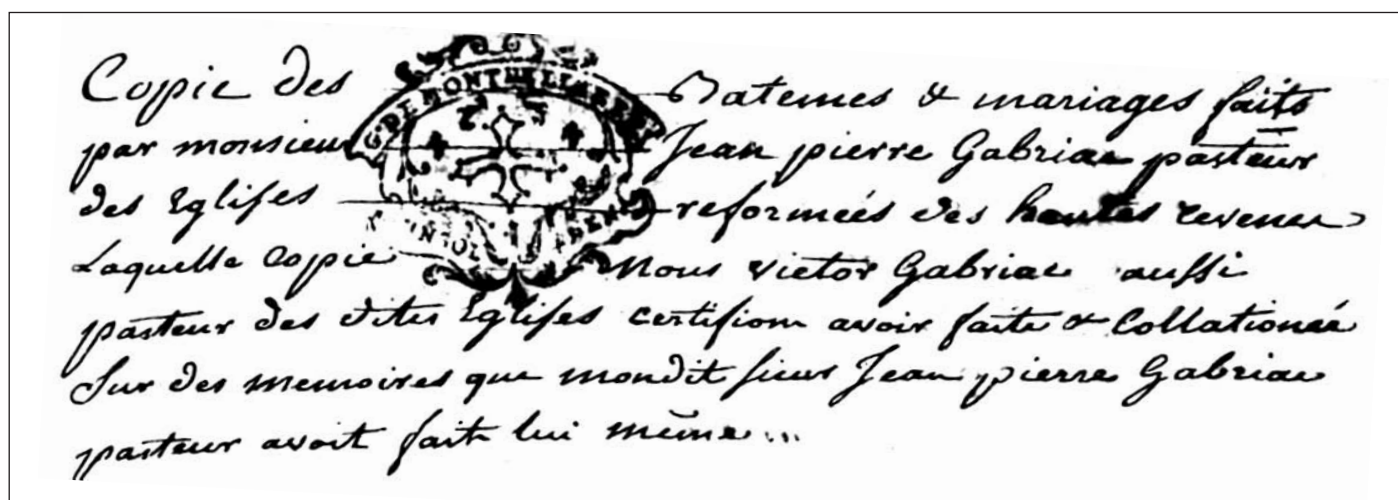 Copie des Batemes & mariages faits
par monsieur Jean pierre Gabriac pasteur
des Eglises reformées des hautes cevenes
Laquelle Copie Nous victor Gabriac aussi
pasteur des dites Eglises certifions avoir faite & Collationée
Sur des memoires que mondit sieur Jean pierre Gabriac
pasteur avoit fait lui même...